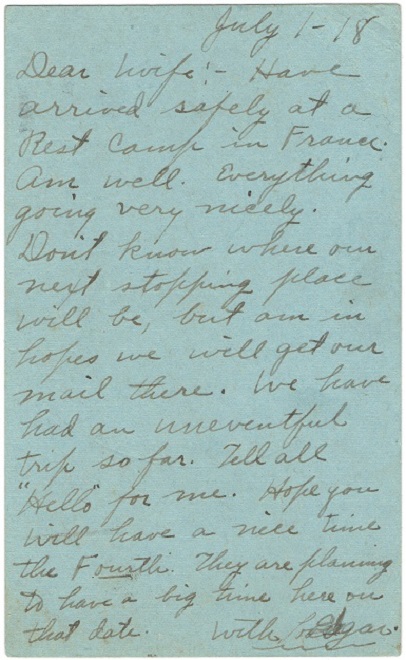 July 1-18
Dear Wife:- Have
arrived safely at a
Rest Camp in France.
Am well. Everything
going very nicely.
Don't know where our
next stopping place
will be, but am in
hopes we will get our
mail there. We have
had an uneventful
trip so far. Tell all
"Hello" for me. Hope you
will have a nice time
the Fourth. They are planing
to have a big time here on
that date. With Edgar.